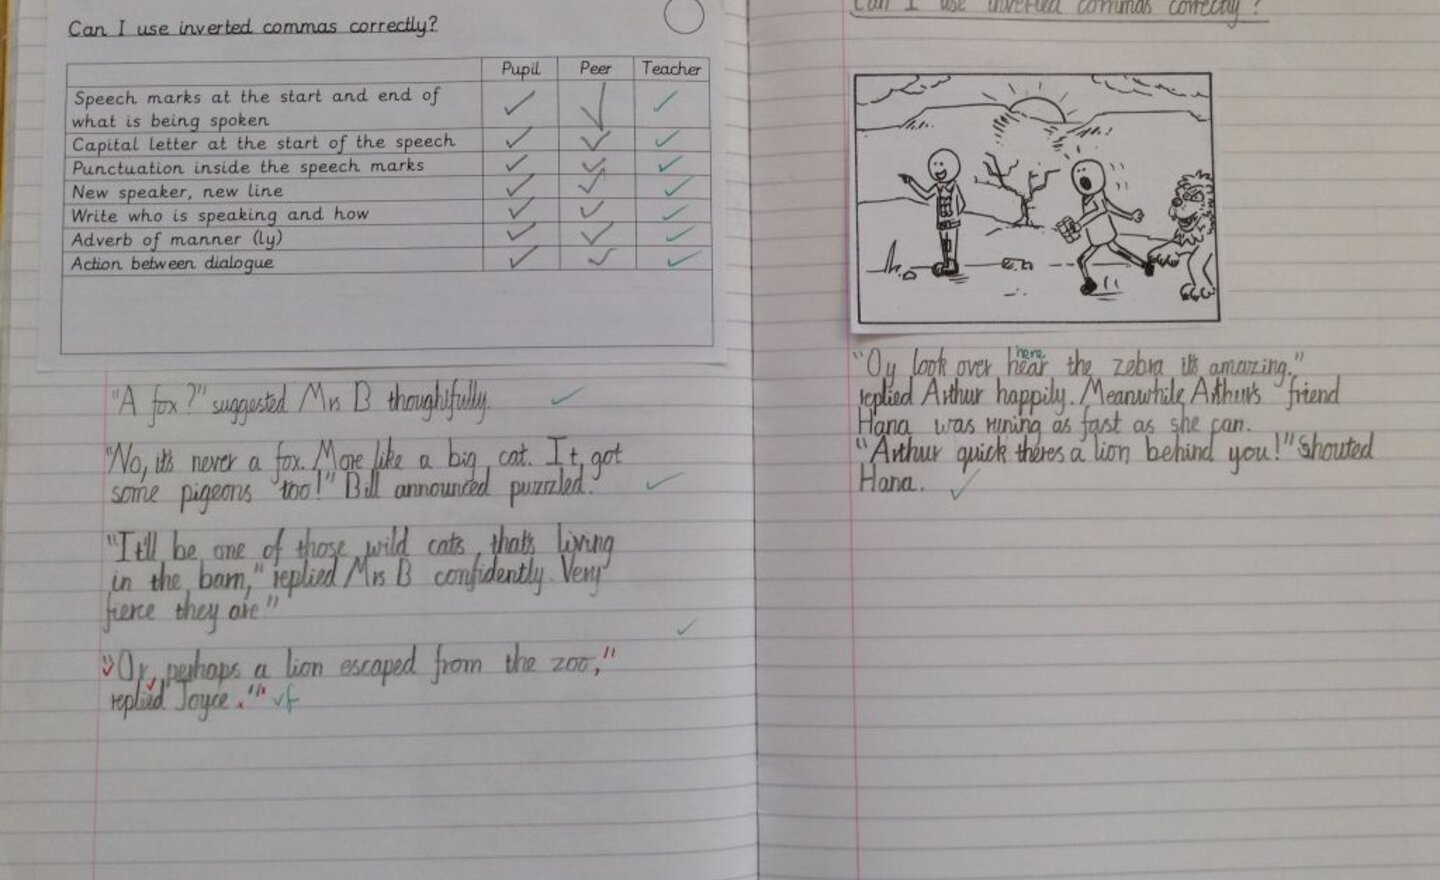 Can I use inverted commas correctly?
Pupil Peer Teacher
Speech marks at the start and end of
what is being spoken
Capital letter at the start of the speech
Punctuation inside the speech marks
New speaker, new line
Write who is speaking and how
Adverb of manner (ly)
Action between dialogue
"A fox?" suggested Mrs B thoughtfully.
"No, it's never a fox. More like a big cat. It got
some pigeons too!" Bill announced puzzled.
"It'll be one of those wild cats, that's living
in the barn," replied Mrs B confidently. Very
fierce they are"
"Or, perhaps a lion escaped from the zoo,"
replied Joyce."
Can I use inverted commas correctly?
"Oy look over hear here the zebra it's amazing."
replied Arthur happily. Meanwhile Arthur's friend
Hana was runing as fast as she can.
"Arthur quick theres a lion behind you!" Shouted
Hana.